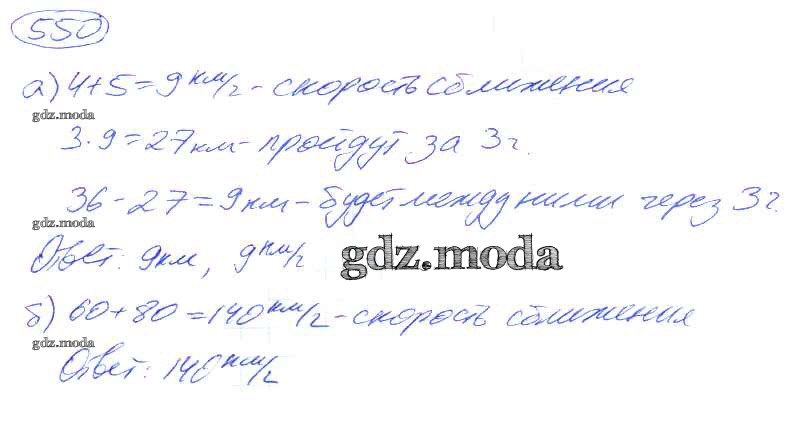 550
а) 4+5=9 км/ч - скорость сближения
gdz.moda
3·9=27 км - пройдут за 3 ч.
36-27=9 км - будет между ними через 3 ч.
gdz.moda
Ответ: 9 км, 9 км/ч
gdz.moda
б) 60+80=140 км/ч - скорость сближения
gdz.moda
Ответ: 140 км/ч